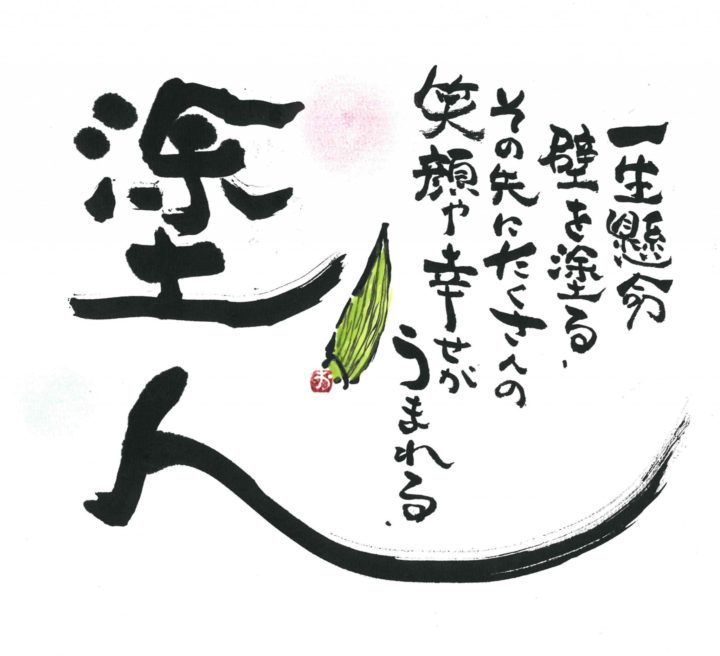 一生懸命
壁を塗る、
その先にたくさんの
笑顔や幸せが
うまれる、
塗人